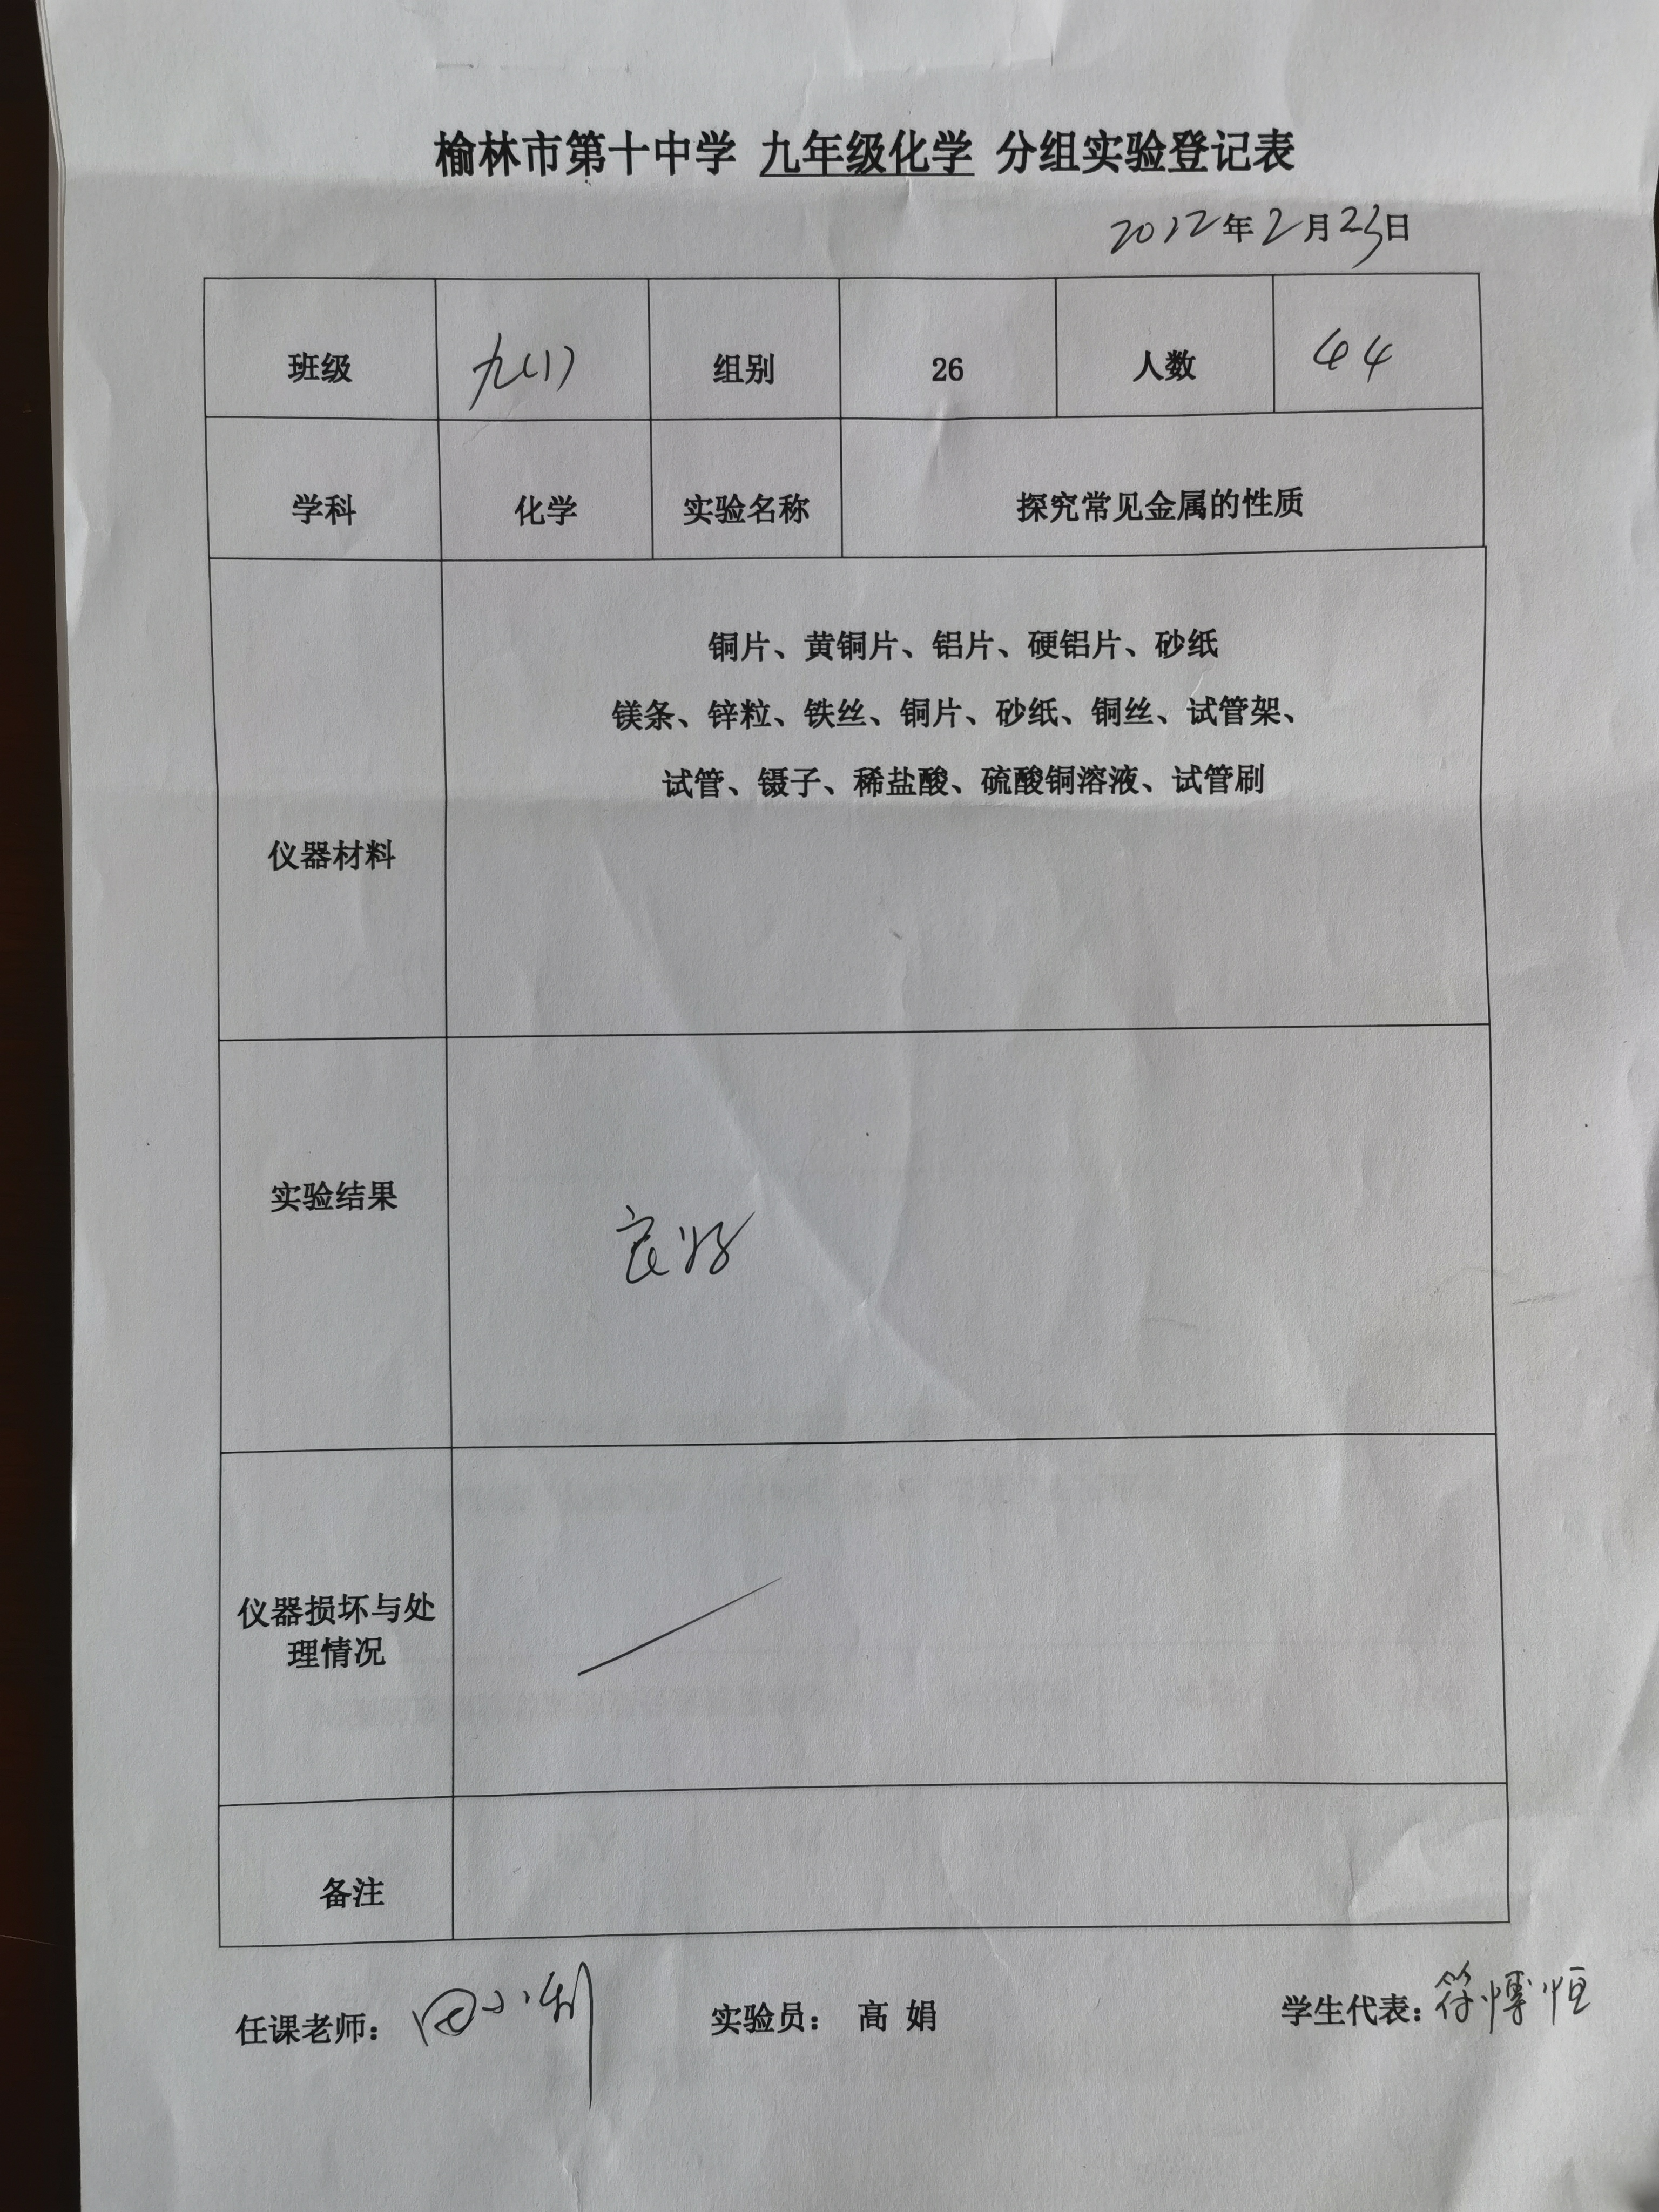 榆林市第十中学 九年级化学 分组实验登记表
2022年2月23日
班级 九(1) 组别 26 人数 44
学科 化学 实验名称 探究常见金属的性质
铜片、黄铜片、铝片、硬铝片、砂纸
镁条、锌粒、铁丝、铜片、砂纸、铜丝、试管架、
试管、镊子、稀盐酸、硫酸铜溶液、试管刷
仪器材料
实验结果 良好
仪器损坏与处
理情况
备注
任课老师： 实验员： 高 娟 学生代表：符博恒